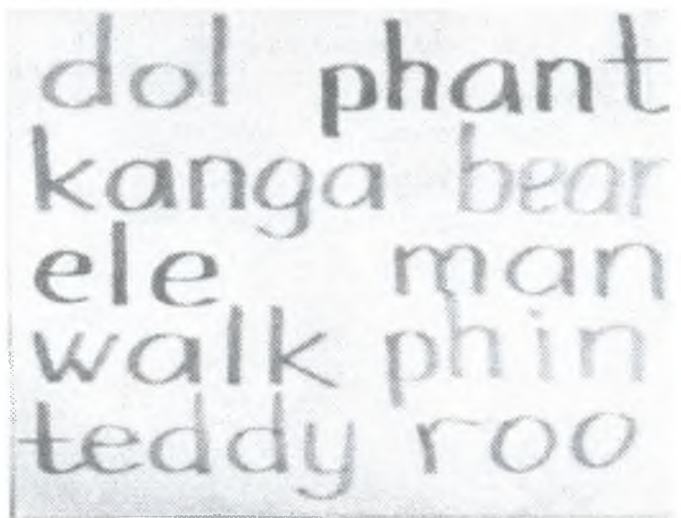 dol phant
kanga bear
ele man
walk phin
teddy roo